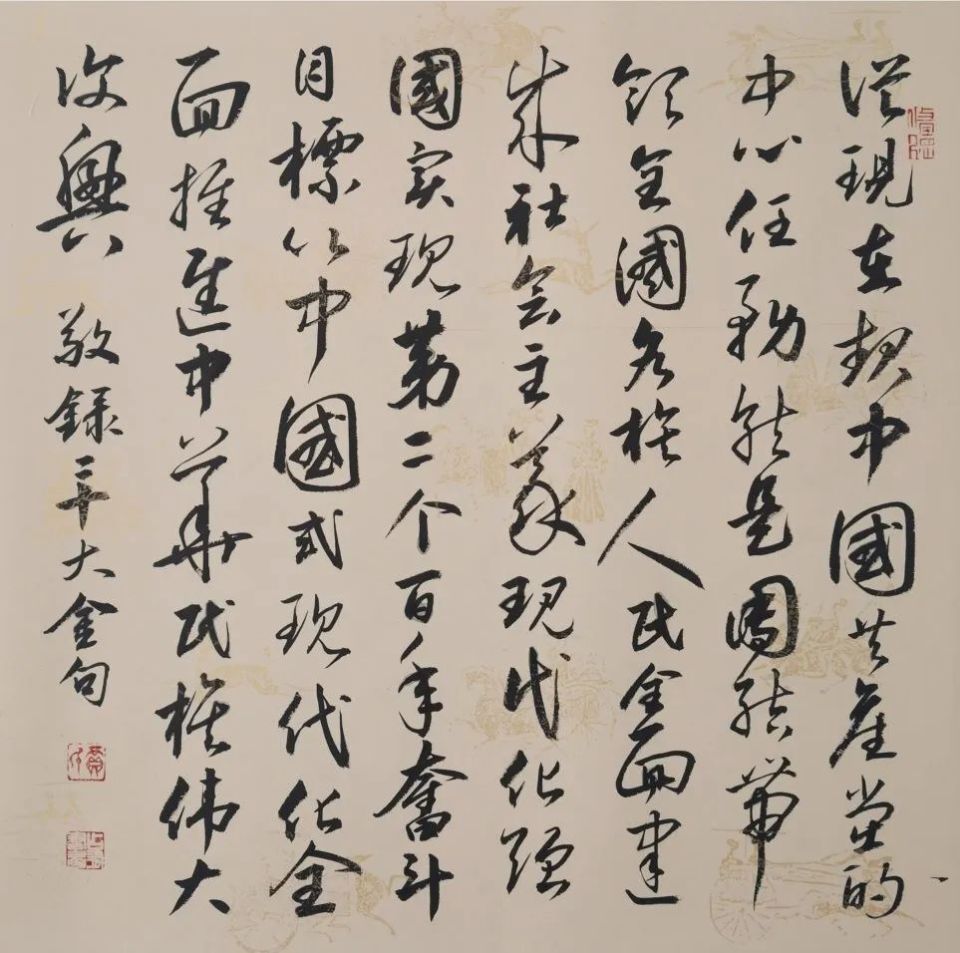 從現在起中國共産党的
中心任務就是團結帶
領全國各族人民全面建
成社会主義現代化强
國实现第二个百年奮斗
目標以中國式现代化全
面推進中華民族伟大
復興 敬録二十大金句